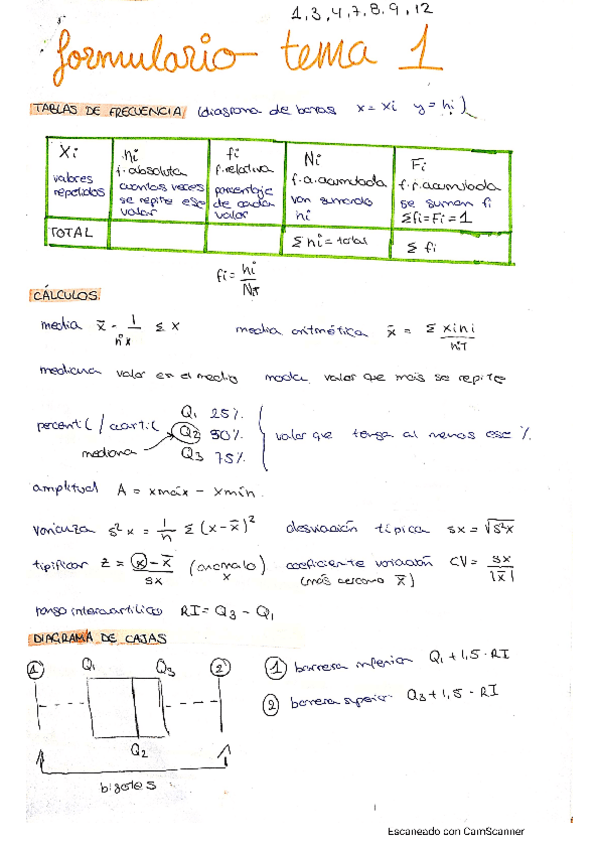 1, 3, 4, 7, 8, 9, 12
formulario tema 1
TABLAS DE FRECUENCIA (diagrama de barras x = xi y = hi)
Xi
valores
repetidos
ni
f. absoluta
cuantas veces
se repite ese
valor
fi
f. relativa
porcentaje
de cada
valor
Ni
f. a. acumulada
van sumando
hi
Fi
f. r. acumulada
se suman fi
Σfi = Fi = 1
TOTAL
Σ hi = total
Σ fi
fi = hi / NT
CÁLCULOS
media x̄ = 1/nºx Σ x
media aritmética x̄ = Σ xini / niT
mediana valor en el medio moda valor que más se repite
percentil / cuartil
Q1 25%
Q2 50%
Q3 75%
mediana
valor que tenga al menos ese %
amplitud A = xmáx - xmín.
varianza s²x = 1/n Σ (x - x̄)²
desviación típica sx = √s²x
tipificar z = x - x̄ / sx (anomalo) x
coeficiente variación CV = sx / |x̄|
(más cercano x̄)
rango intercuartílico RI = Q3 - Q1
DIAGRAMA DE CAJAS
1 Q1 Q3 2
Q2
bigotes
1 barrera inferior Q1 + 1,5 · RI
2 barrera superior Q3 + 1,5 · RI
Escaneado con CamScanner